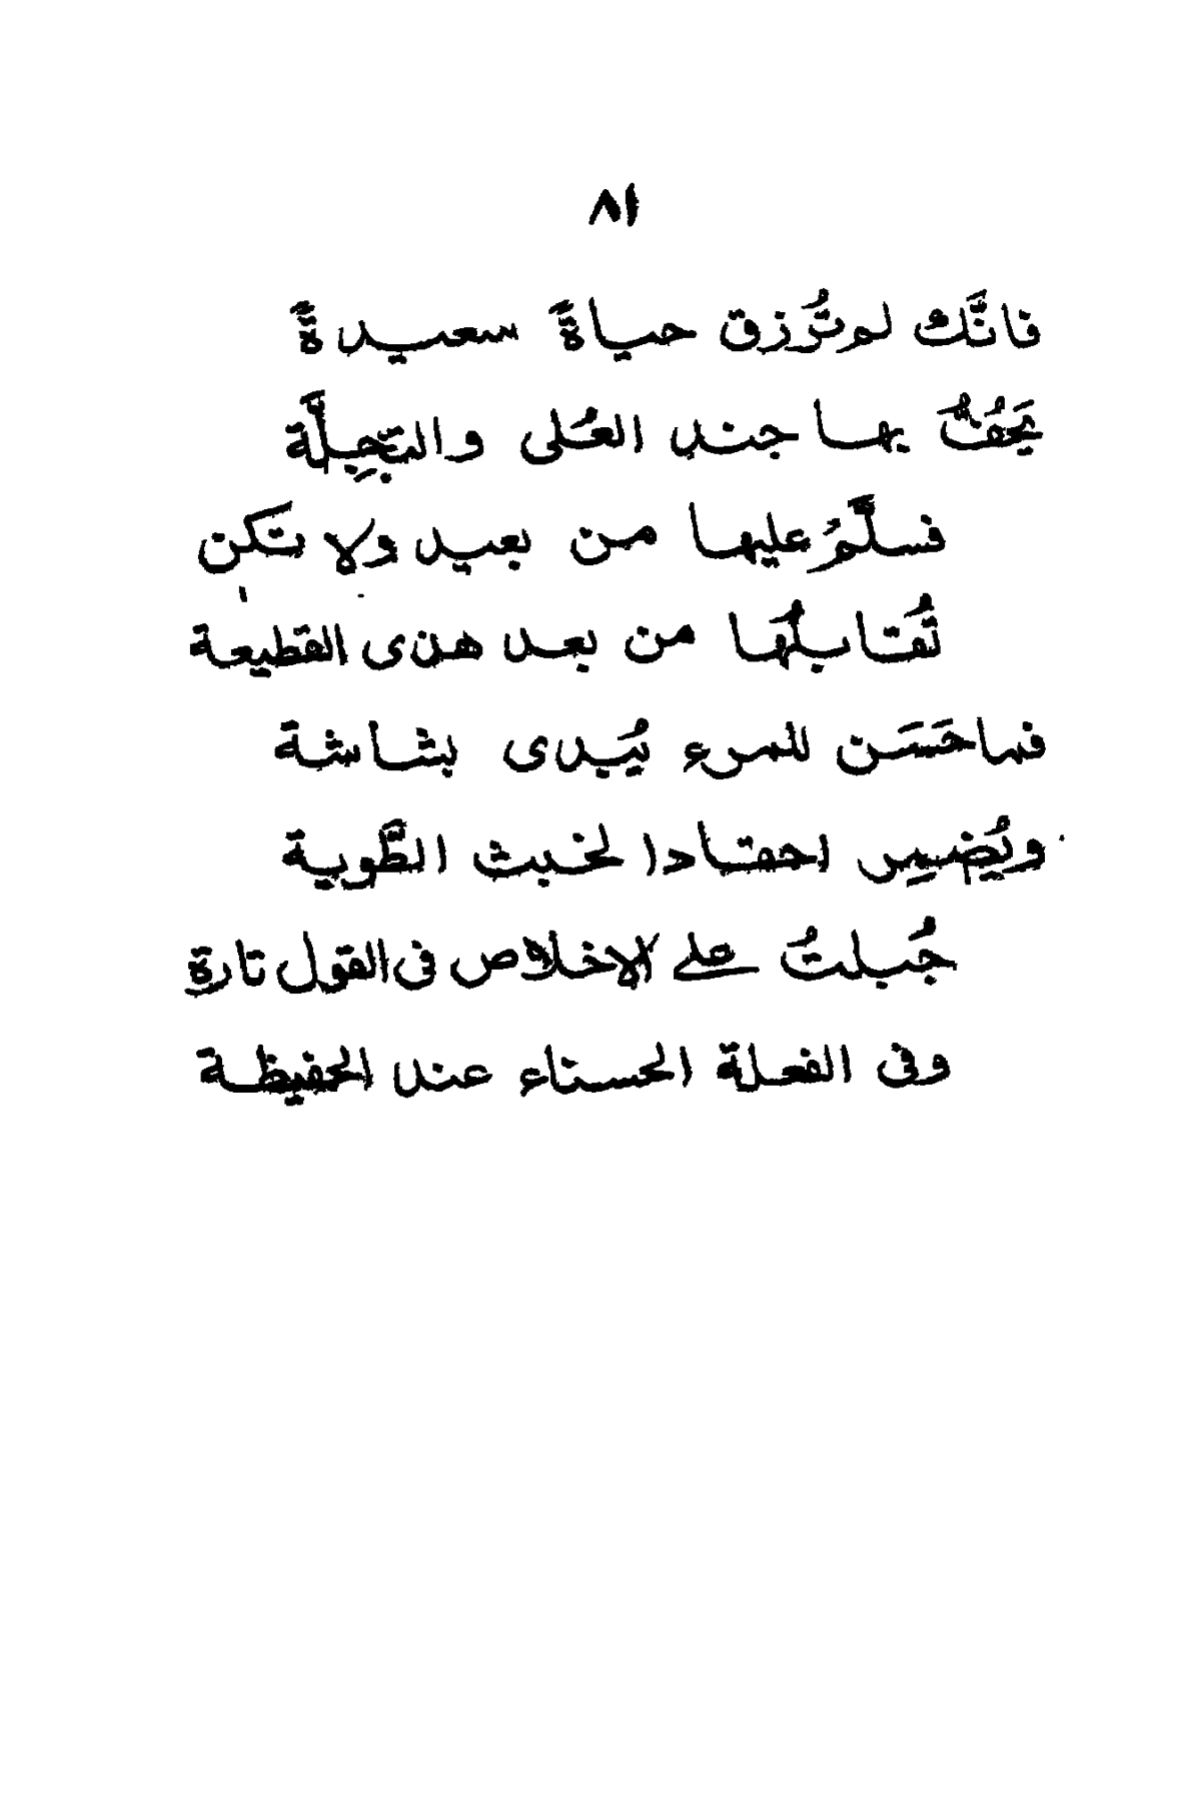 ٨١
فانَّك لم تُرزق حياةً سعيدةً
يَحُفُّ بها جند العُلى والتَجِلَّة
فسلِّم عليها من بعيد ولا تكن
تُقابلُها من بعد هذى القطيعة
فما حَسَن للمرء يُبدى بشاشة
ويُضمِر احقادا لخبث الطَّوية
جُبلتُ على الاخلاص فى القول تارة
وفى الفعلة الحسناء عند الحفيظة